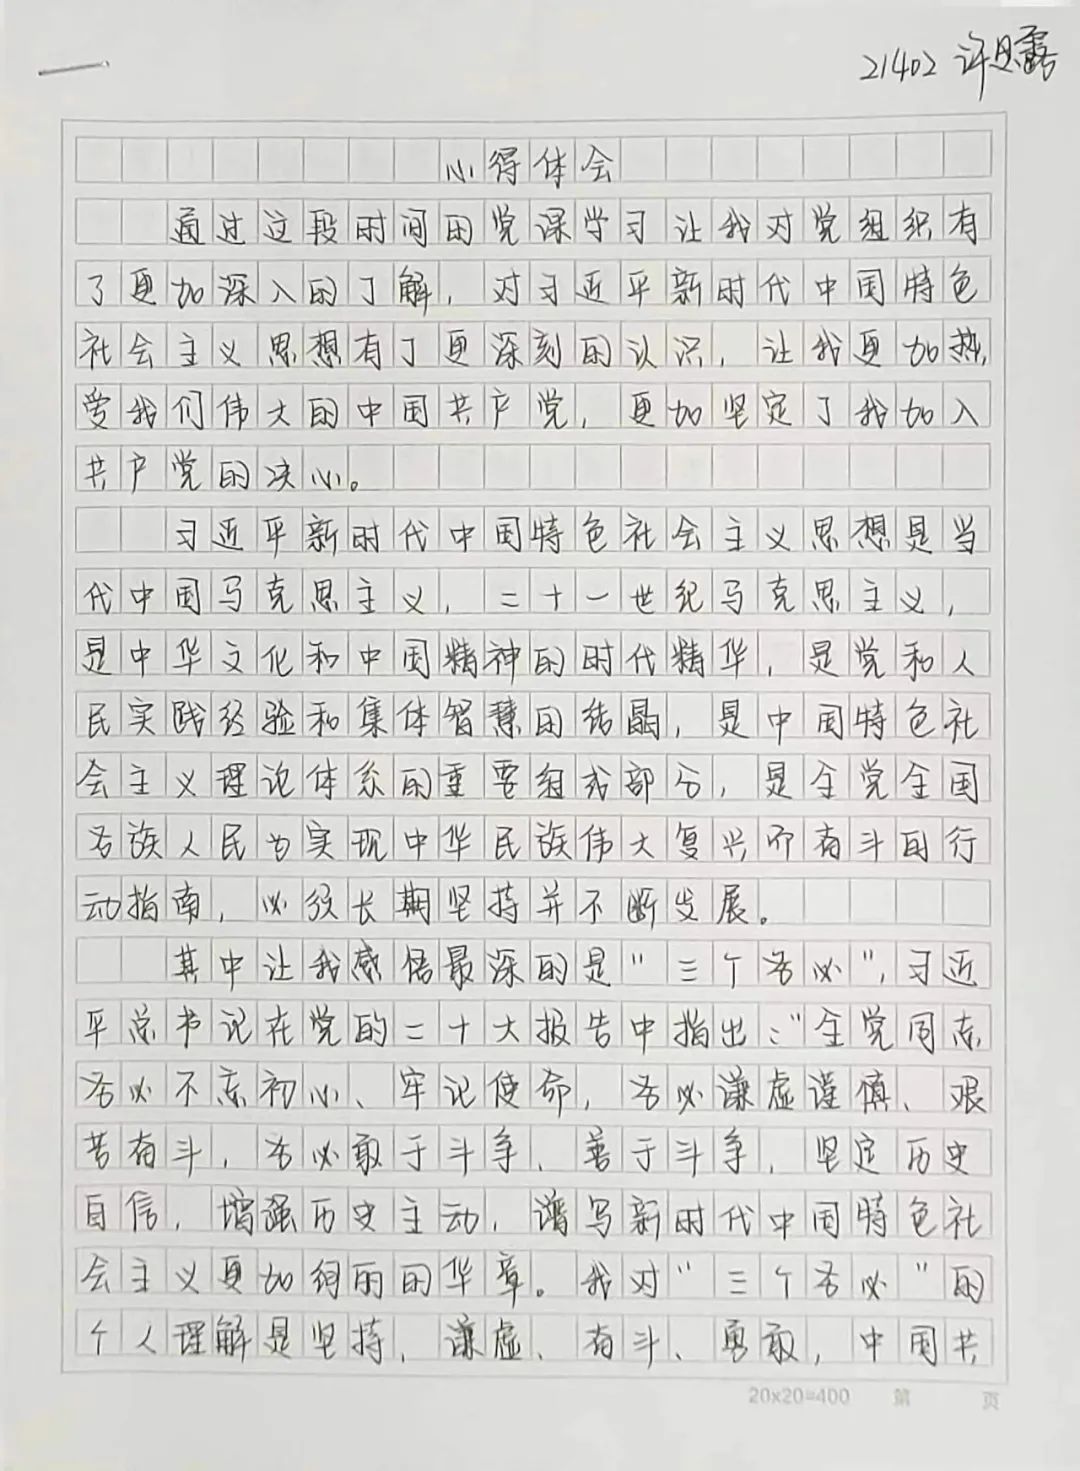 21402 许思露
心得体会
通过这段时间的党课学习让我对党组织有
了更加深入的了解,对习近平新时代中国特色
社会主义思想有了更深刻的认识,让我更加热
爱我们伟大的中国共产党,更加坚定了我加入
共产党的决心。
习近平新时代中国特色社会主义思想是当
代中国马克思主义,二十一世纪马克思主义,
是中华文化和中国精神的时代精华,是党和人
民实践经验和集体智慧的结晶,是中国特色社
会主义理论体系的重要组成部分,是全党全国
各族人民为实现中华民族伟大复兴而奋斗的行
动指南,必须长期坚持并不断发展。
其中让我感悟最深的是“三个务必”,习近
平总书记在党的二十大报告中指出:“全党同志
务必不忘初心、牢记使命,务必谦虚谨慎、艰
苦奋斗,务必敢于斗争、善于斗争,坚定历史
自信,增强历史主动,谱写新时代中国特色社
会主义更加绚丽的华章。我对“三个务必”的
个人理解是坚持、谦虚、奋斗、勇敢,中国共
20x20=400 第 页